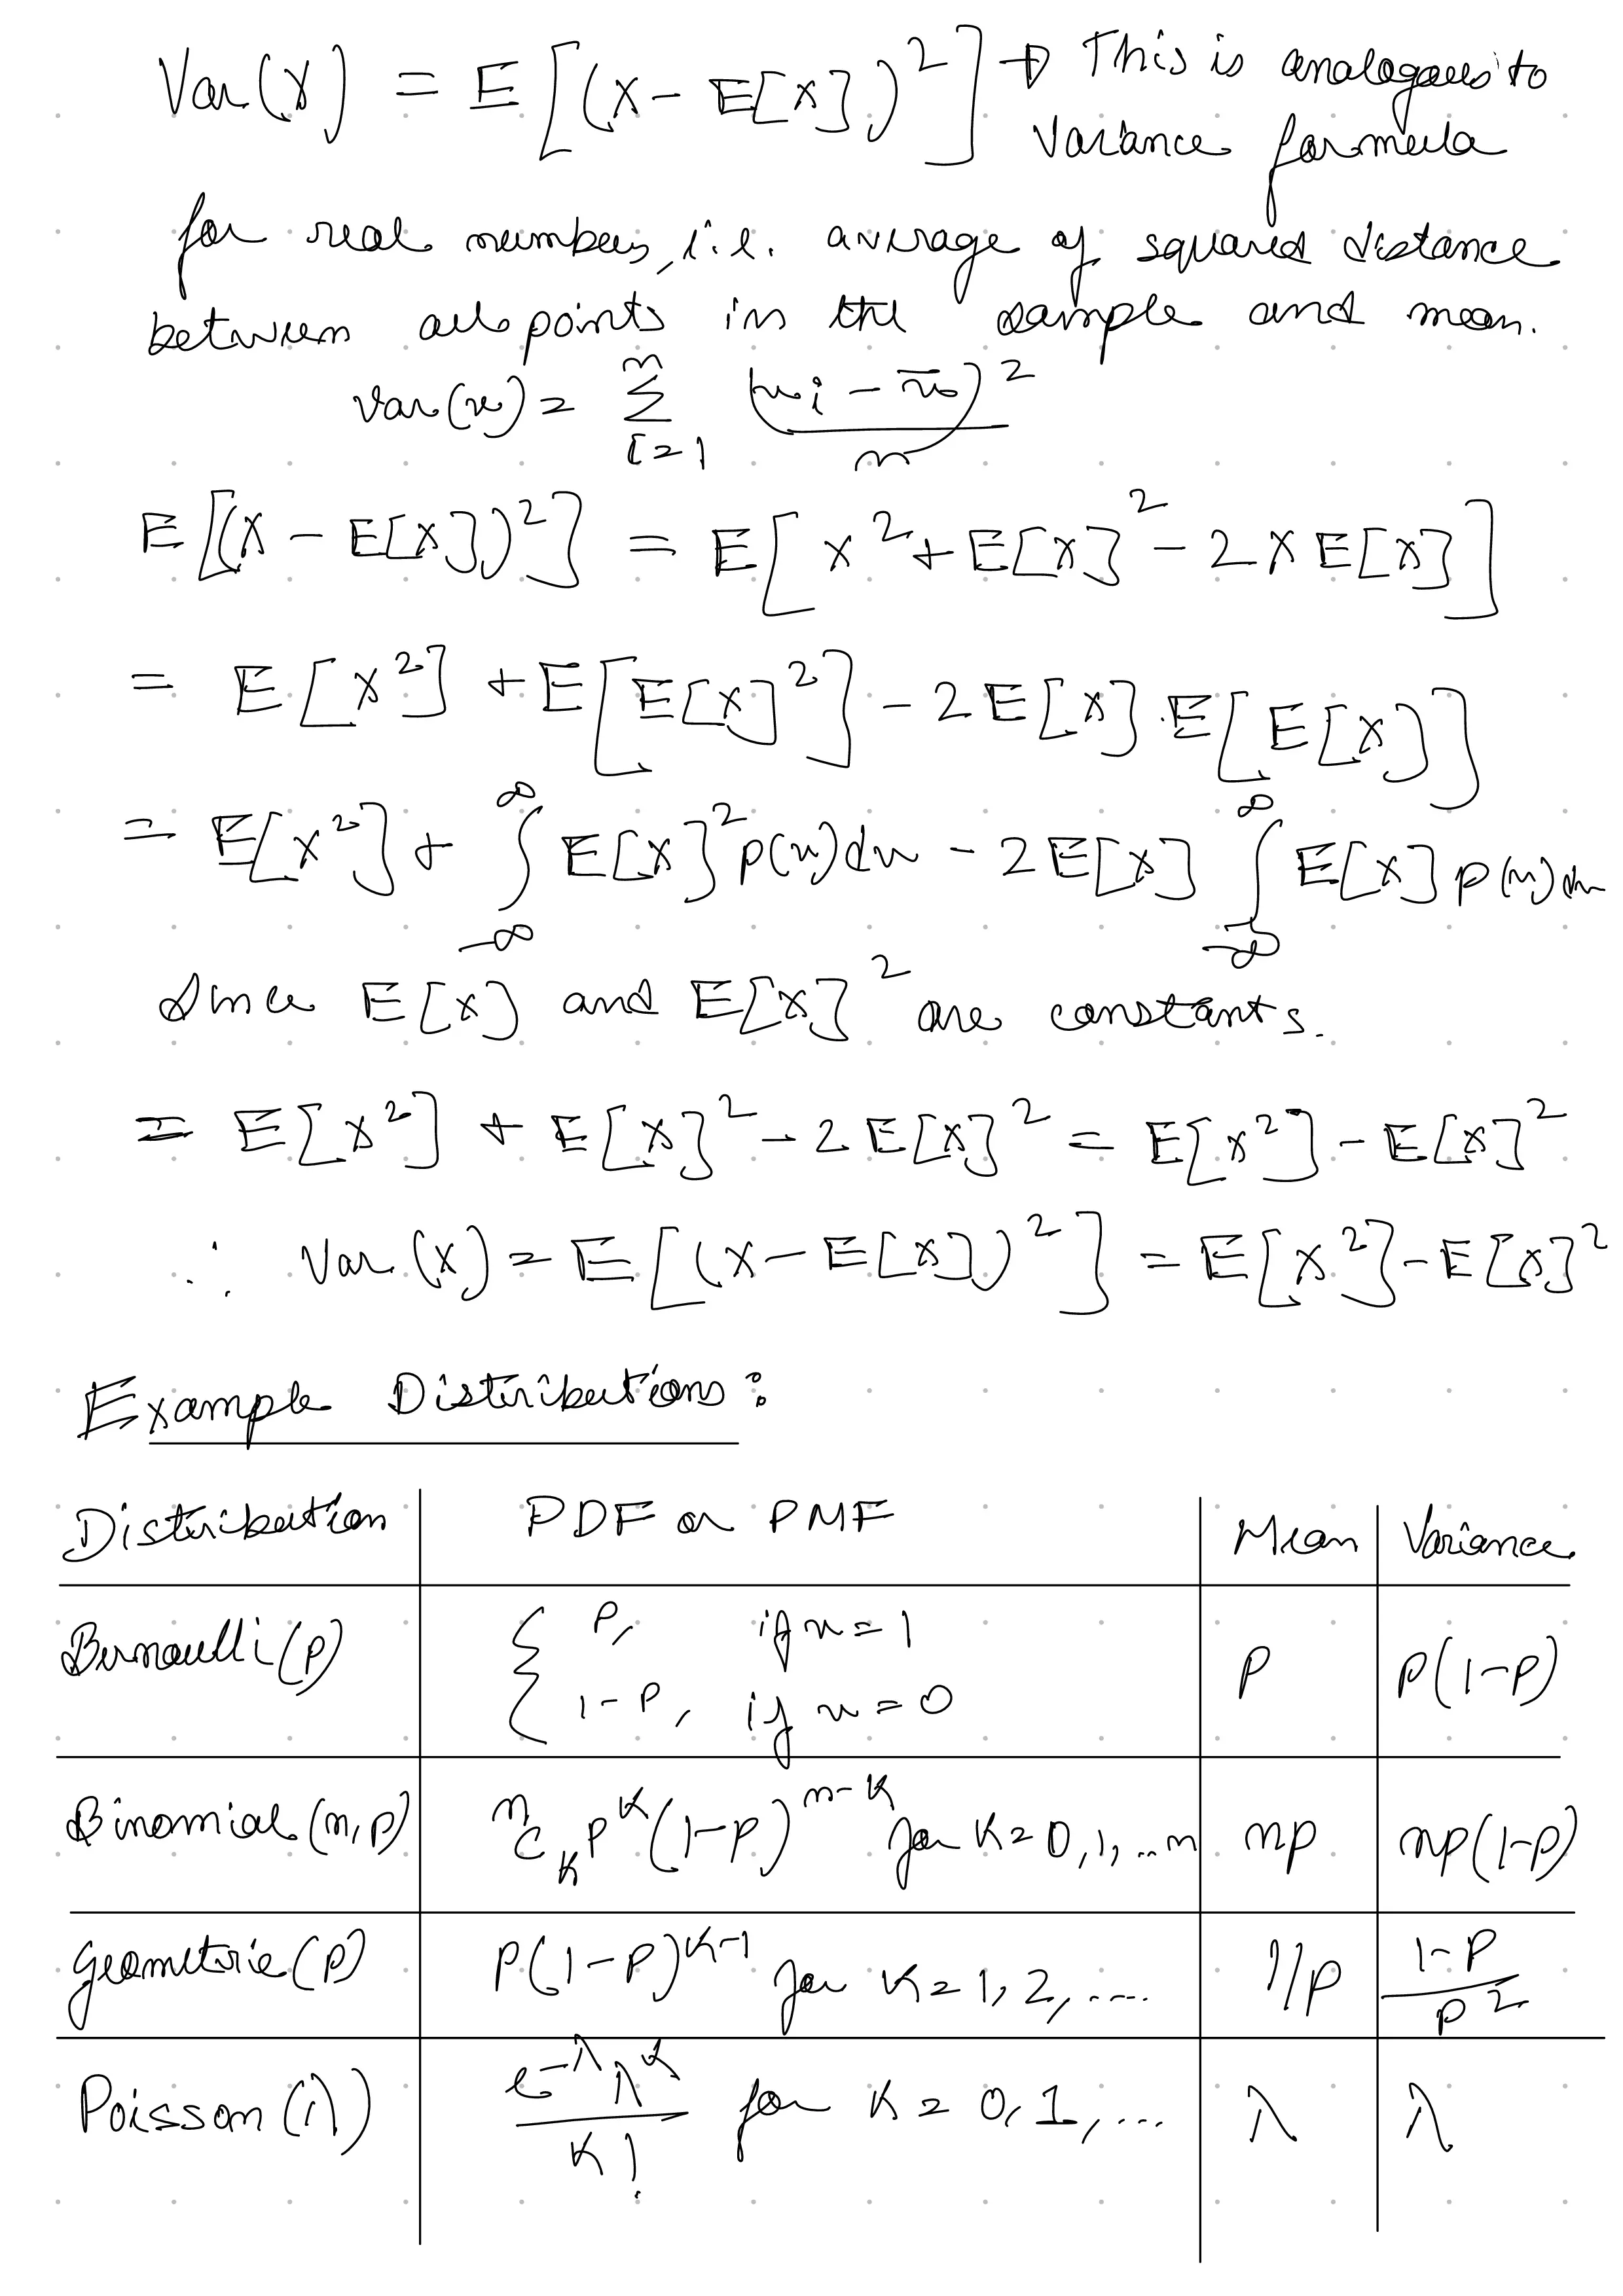 Var(X) = E[(X - E[X])²] → This is analogous to
variance formula
for real numbers, i.e. average of squared distance
between all points in the sample and mean.
Var(x) = Σ_{i=1}^{n} (x_i - x̄)² / n
E[(X - E[X])²] = E[X² + E[X]² - 2XE[X]]
= E[X²] + E[E[X]²] - 2E[X].E[E[X]]
= E[X²] + ∫_{-∞}^{∞} E[X]² p(x)dx - 2E[X] ∫_{-∞}^{∞} E[X] p(x)dx
Since E[X] and E[X]² are constants.
= E[X²] + E[X]² - 2E[X]² = E[X²] - E[X]²
∴ Var(X) = E[(X - E[X])²] = E[X²] - E[X]²
Example Distributions:
Distribution | PDF or PMF | Mean | Variance
Bernoulli(p) | { p, if x = 1 | p | p(1-p)
1-p, if x = 0
Binomial(n,p) | ⁿC_k p^k (1-p)^{n-k} for k = 0,1,...n | np | np(1-p)
Geometric(p) | p(1-p)^{k-1} for k = 1,2,.... | 1/p | (1-p)/p²
Poisson(λ) | e^{-λ} λ^k / k! for k = 0,1,... | λ | λ